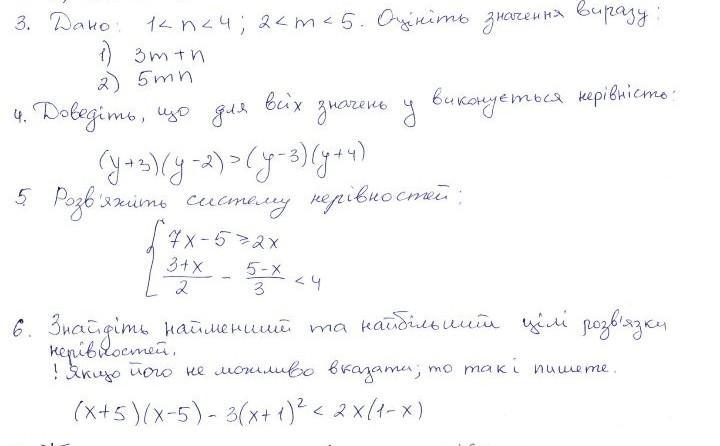 3. Дано: 1 < n < 4 ; 2 < m < 5. Оцініть значення виразу:
1) 3m+n
2) 5mn
4. Доведіть, що для всіх значень y виконується нерівність:
(y+3)(y-2)>(y-3)(y+4)
5. Розв'яжіть систему нерівностей:
7x-5 ≥ 2x
3+x/2 - 5-x/3 < 4
6. Знайдіть найменший та найбільший цілі розв'язки
нерівностей.
! Якщо його не можливо вказати, то так і пишете.
(x+5)(x-5) - 3(x+1)² < 2x(1-x)